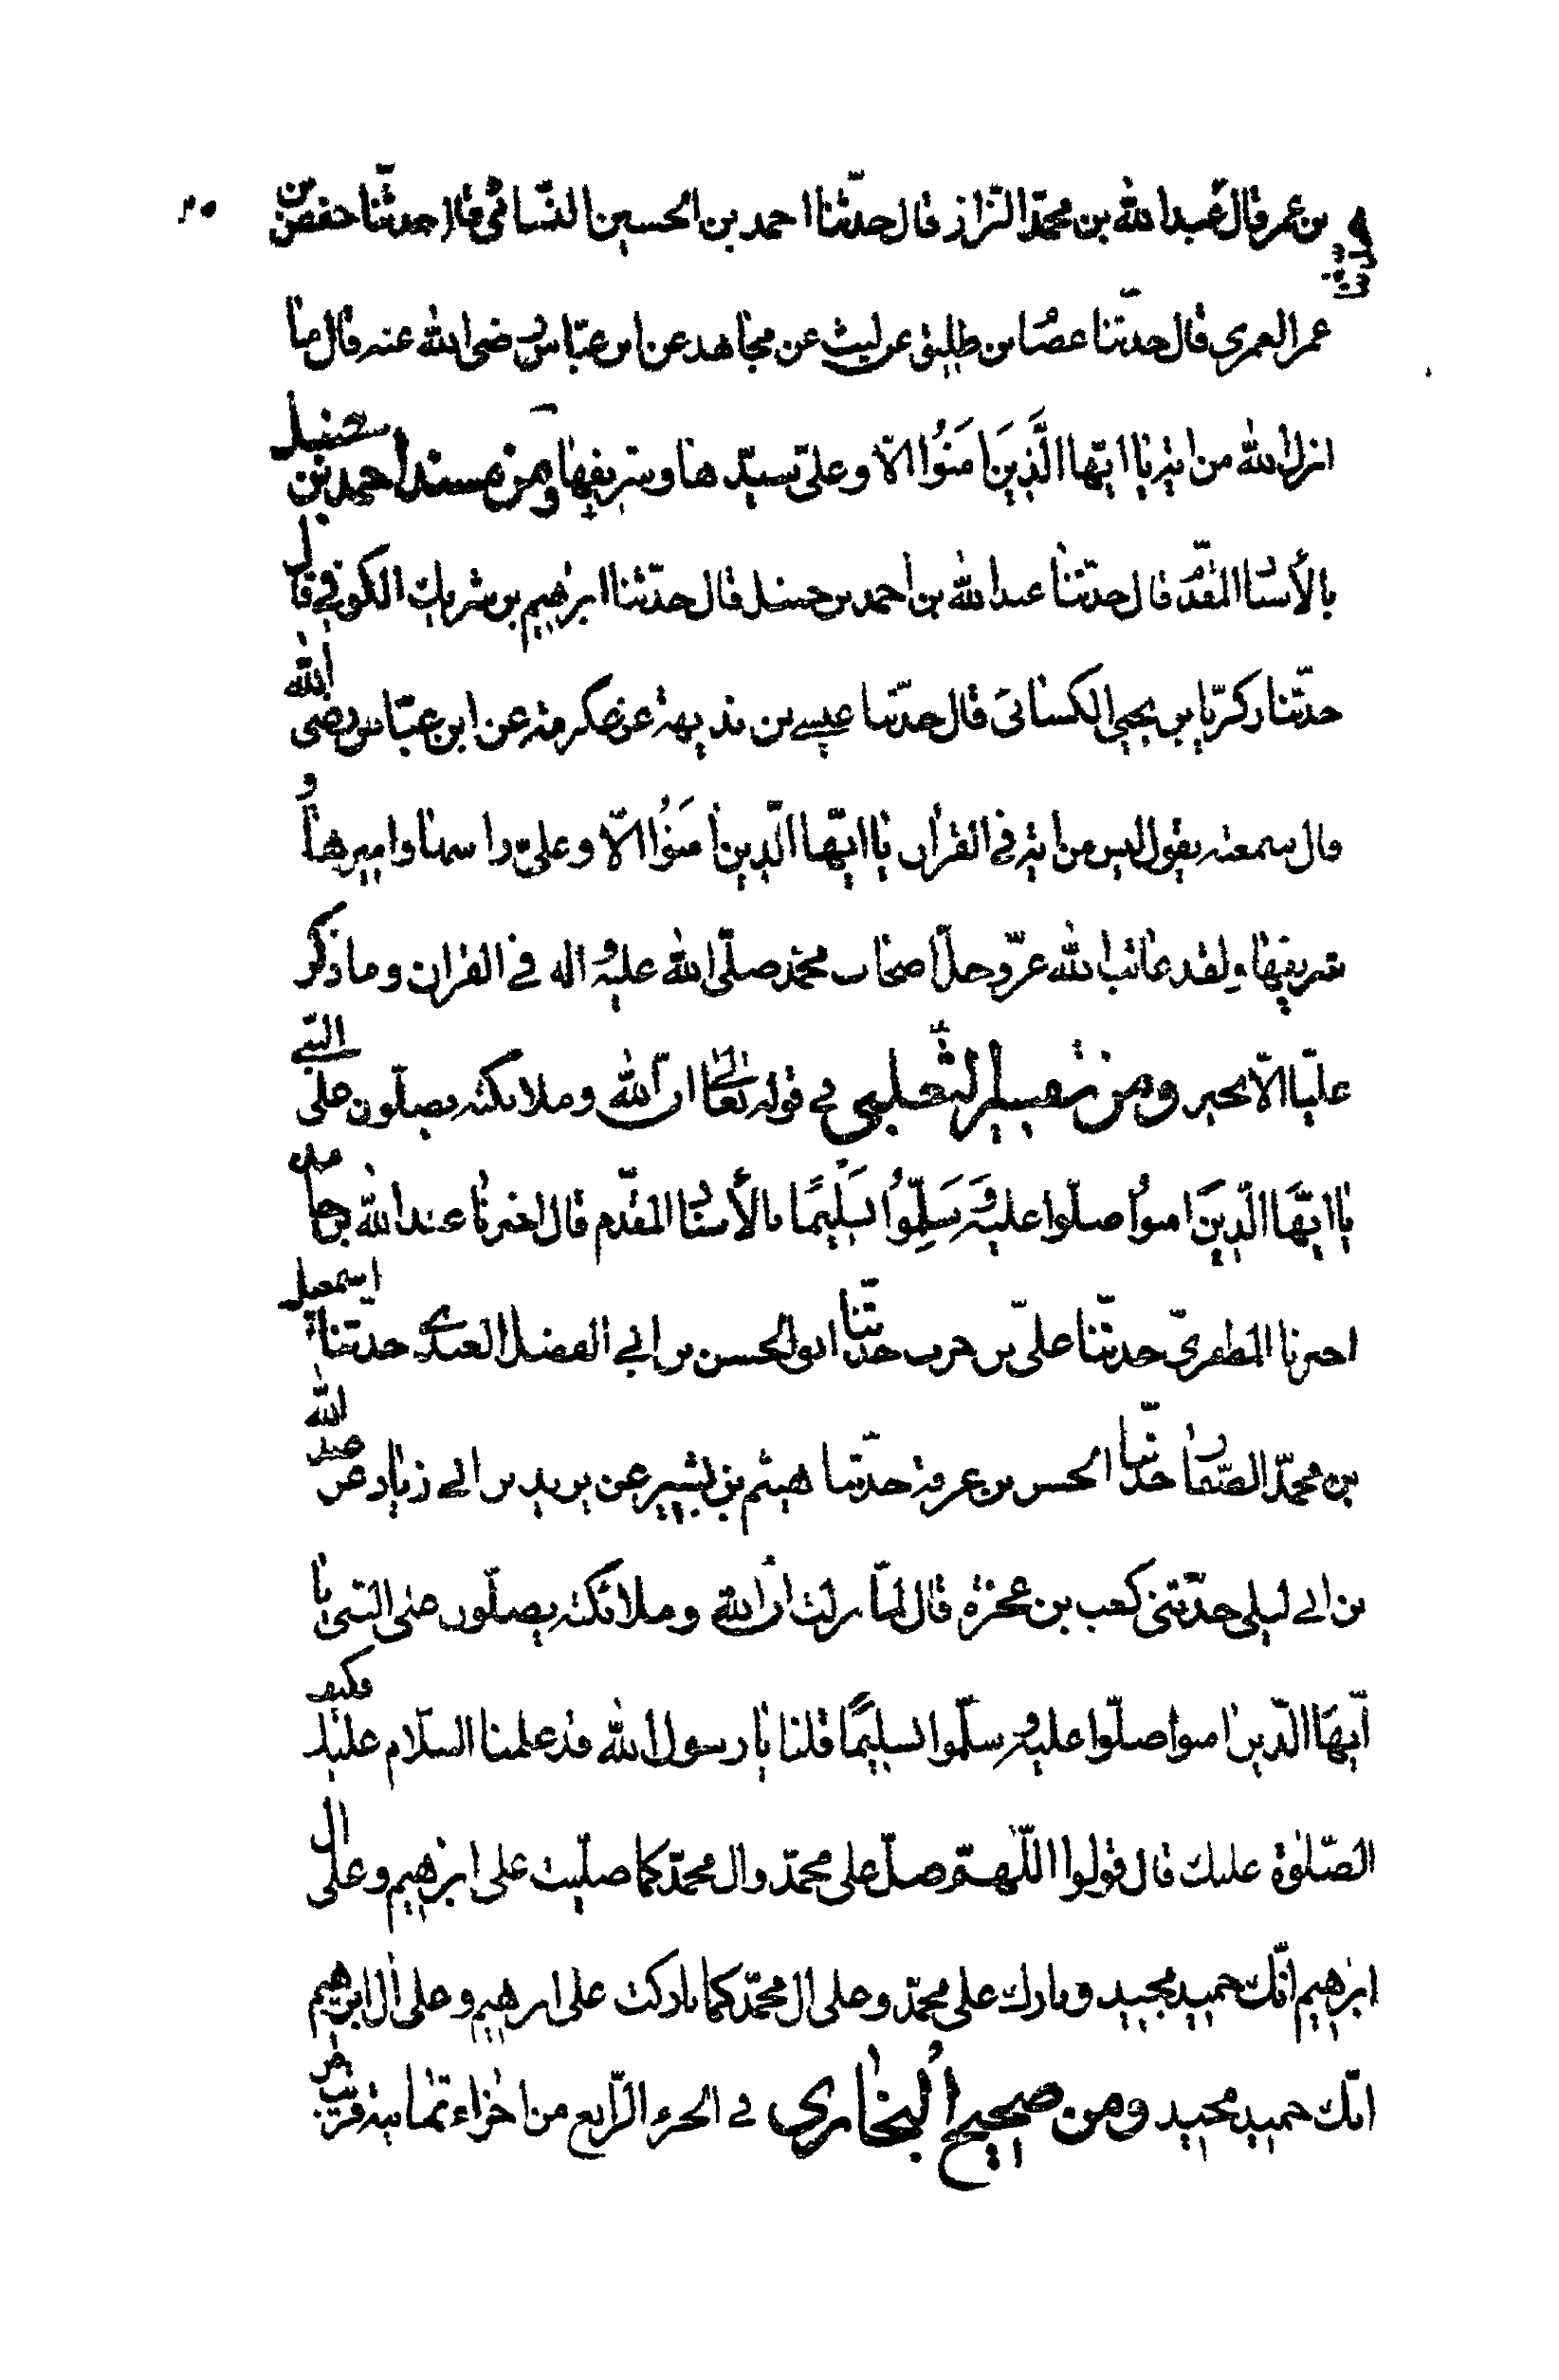 بن عمر قال عبد الله بن محمد البزاز قال حدّثنا احمد بن الحسين النسائي قال حدثنا حفص بن
عمر العمري قال حدّثنا عصام بن طليق عن ليث عن مجاهد عن ابن عبّاس رضي الله عنه قال ما
انزل الله من اية يا ايّها الَّذِينَ امَنُوا الّا وعليّ سيّدها وشريفها ومن مسند احمد بن حنبل
بالأسناد المقدّم قال حدّثنا عبد الله بن احمد بن حنبل قال حدّثنا ابرهيم بن شريك الكوفي قال
حدّثنا زكريّا بن يحيى الكسائى قال حدّثنا عيسى بن عن عكرمة عن ابن عبّاس رضى الله
قال سمعته يقول ليس من اية في القران يا ايّها الّذين امَنُوا الّا وعليّ راسها واميرها و
شريفها ولقد عاتب الله عزّ وجلّ اصحاب محمّد صلّى الله عليه واله في القران وما ذكر
عليّا الّا بخير ومن تفسير الثعلبي في قوله تعالى انّ الله وملائكته يصلّون على النبي
يا ايّهَا الّذِينَ امنوا صلّوا عليه وَسَلِّمُوا تسْلِيمًا بالأسناد المقدّم قال اخبرنا عبد الله بن حامد
اخبرنا المطهري حدّثنا عليّ بن حرب حدّثنا ابو الحسن بن ابي الفضل العبدي حدّثنا اسمعيل
بن محمّد الصّفار حدّثنا الحسن بن عرفة حدّثنا هيثم بن بشير عن يزيد بن ابي زياد عن عبد الله
بن ابي ليلى حدّثنى كعب بن عجزة قال لمّا نزلت انّ الله وملائكته يصلّون على النبّى يا
ايّهَا الّذين امنوا صلّوا عليه وسلّموا تسليمًا قلنا يا رسول الله قد علمنا السّلام عليك فكيف
الصّلوة عليك قال قولوا اللّهمّ صلّ على محمّد وال محمّد كما صلّيت على ابرهيم وعلى ال
ابرهيم انّك حميد مجيد وبارك على محمّد وعلى ال محمّد كما باركت على ابرهيم وعلى ال ابرهيم
انّك حميد مجيد ومن صحيح البخاري في الجزء الرّابع من اجزاء ثمانية قريب من